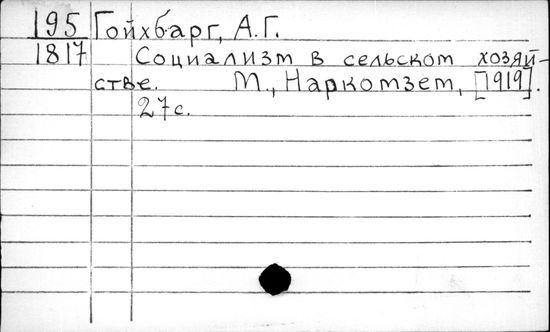 195 Гойхбарг, А.Г.
1817 Социализм в сельском хозяй-
стве. М., Наркомзем, [1919].
27с.